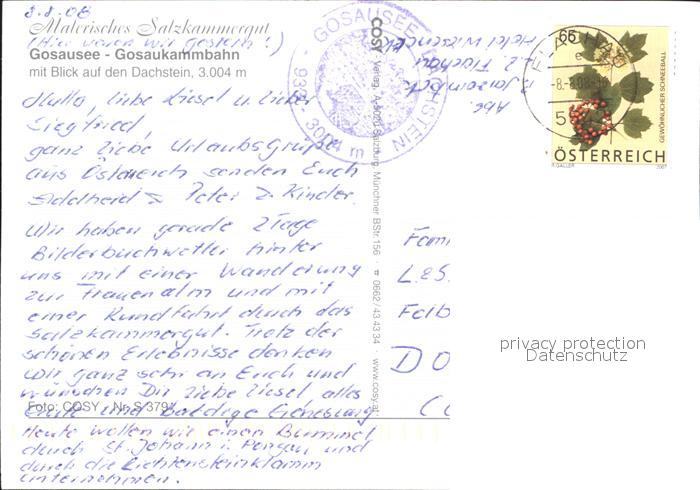 8.8.08
Malerisches Salzkammergut
(Hier waren wir gestern!)
Gosausee - Gosaukammbahn
mit Blick auf den Dachstein, 3.004 m
Hallo, liebe Liesel u. lieber
Siegfried,
ganz liebe Urlaubsgrüße
aus Österreich senden Euch
Adelheid & Peter & Kinder.
Wir haben gerade 2 Tage
Bilderbuchwetter hinter
uns mit einer Wanderung
zur Frauenalm und mit
einer Rundfahrt durch das
Salzkammergut. Trotz der
schönen Erlebnisse denken
Wir ganz sehr an Euch und
wünschen Dir liebe Liesel alles
Gute und baldige Genesung
Foto: COSY · Nr. S 379
Heute wollen wir einen Bummel
durch St. Johann i. Pongau und
durch die Liechtensteinklamm
unternehmen.
GOSAUSEE - DACHSTEIN
3004 m
COSY - Verlag, A-5020 Salzburg, Münchner BStr. 156 · ☎ 0662 / 43 43 34 · www.cosy.at
Abs.
z.Z. Flachau
FLACHAU
-8.-8.08
66
GEWÖHNLICHER SCHNEEBALL
ÖSTERREICH
2007
Fam
DO
privacy protection
Datenschutz